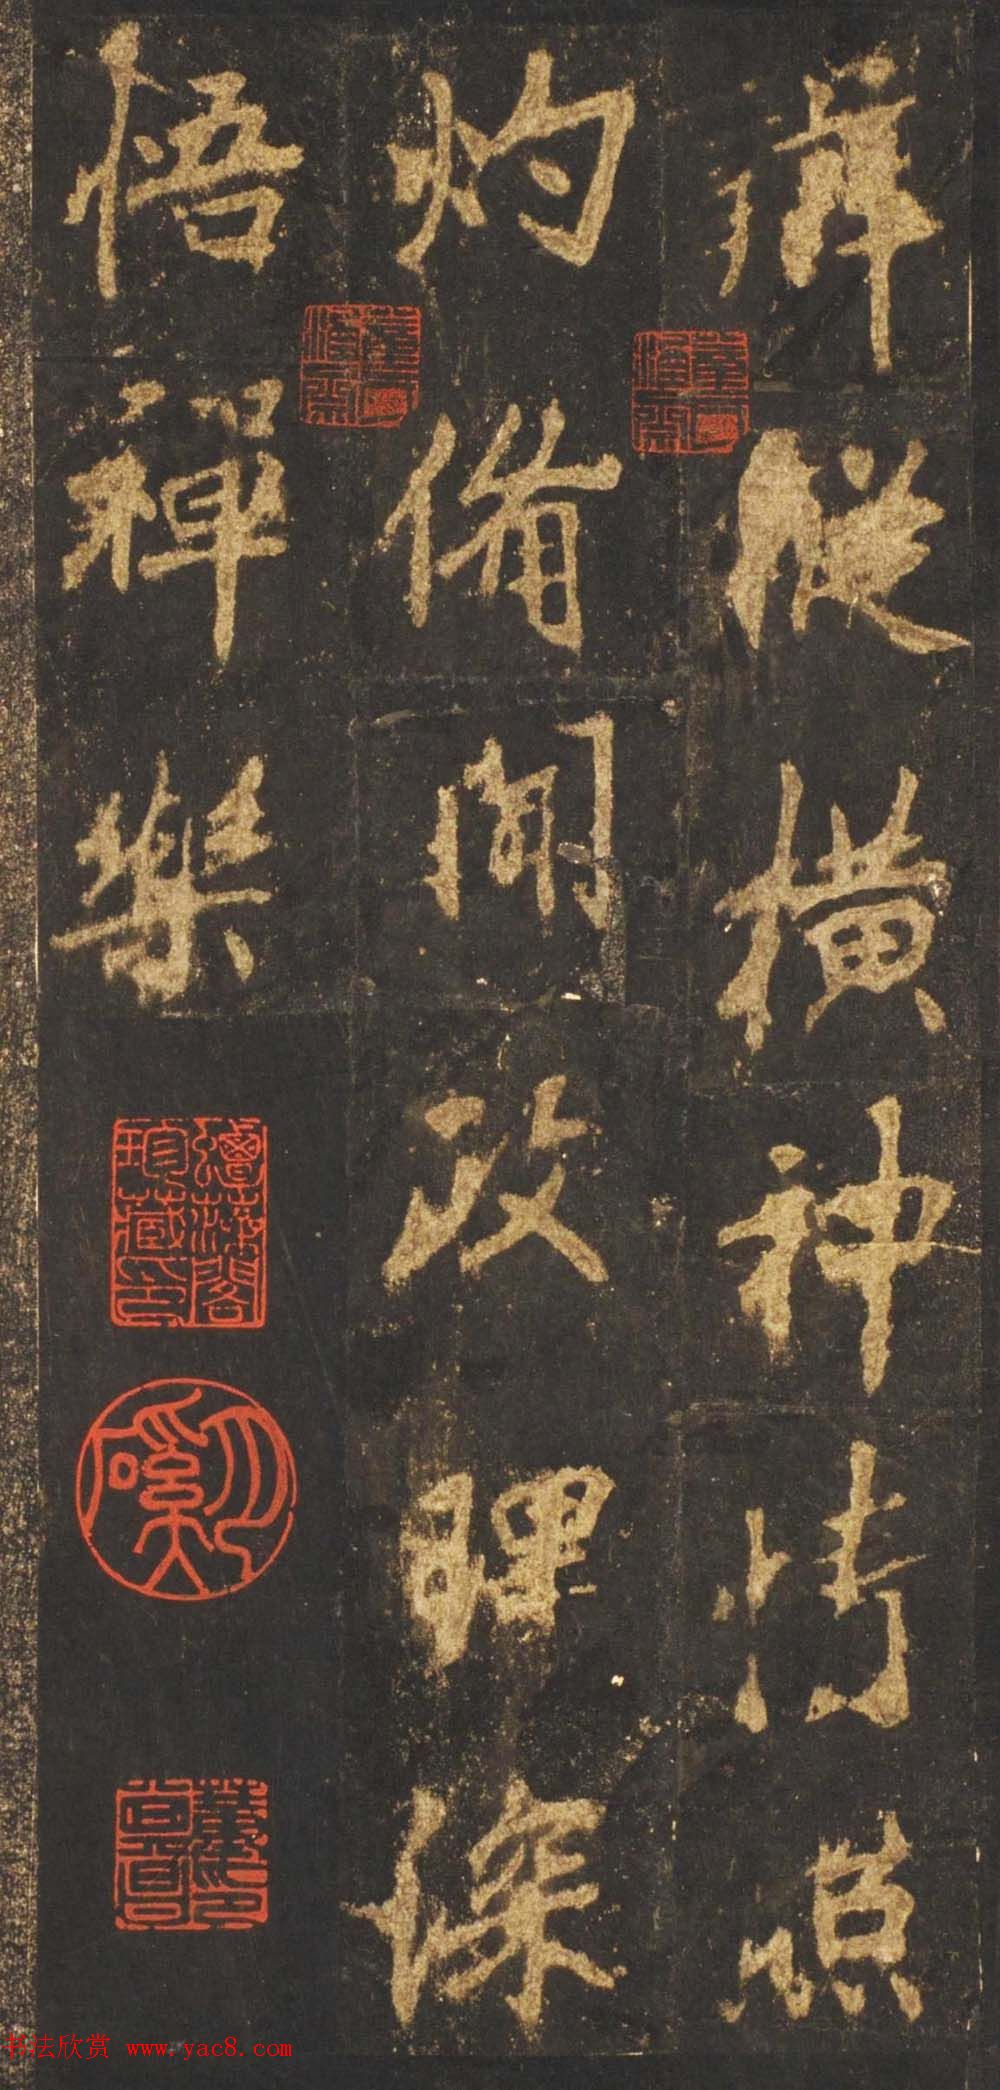 辯縱橫神情照
灼備聞政理深
悟禪樂
书法欣赏 www.yac8.com